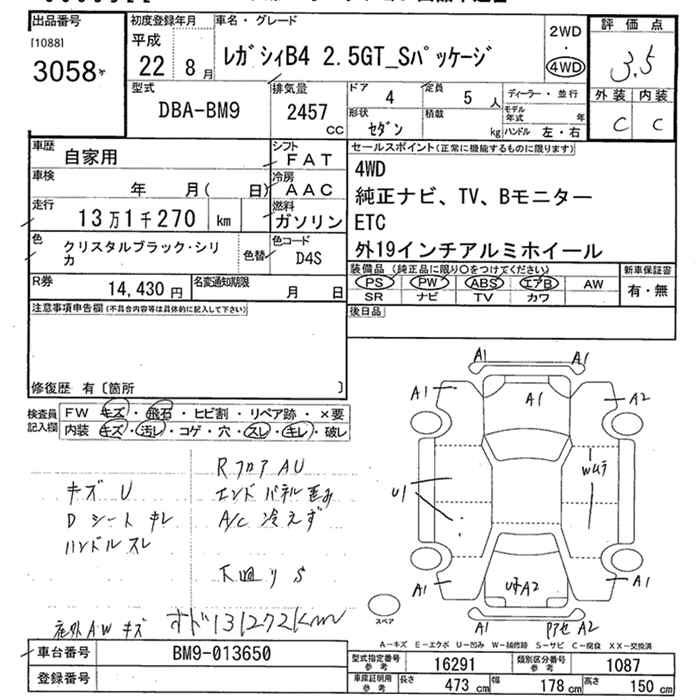 出品番号
[1088]
3058
初度登録年月
平成
22 8月
車名・グレード
レガシィB4 2.5GT_Sパッケージ
2WD
・
4WD
評価点
3.5
外装 内装
C C
型式
DBA-BM9
排気量
2457
CC
ドア
4
定員
5 人
形状
セダン
積載
kg
ディーラー・並行
モデル年式 年
ハンドル 左・右
車歴
自家用
シフト
FAT
車検
年 月( 日)
冷房
AAC
走行
13万1千270 km
燃料
ガソリン
色
クリスタルブラック・シリカ
色替
色コード
D4S
R券
14,430 円
名変通知期限
月 日
セールスポイント(正常に機能するものに限ります)
4WD
純正ナビ、TV、Bモニター
ETC
外19インチアルミホイール
装備品 (純正品に限り○をつけてください)
PS PW ABS エアB AW
SR ナビ TV カワ
新車保証書
有・無
後日品
注意事項申告欄(不具合内容等は具体的に記入して下さい)
修復歴 有 [箇所 ]
検査員記入欄
FW キズ・飛石・ヒビ割・リペア跡・×要
内装 キズ・汚レ・コゲ・穴・スレ・キレ・破レ
RフロアAU
キズ U
エンドパネル歪み
Dシートキレ
A/C 冷えず
ハンドルスレ
下廻りS
社外AWキズ
オド131272km
A1 A1
A1 A1 A2
U1
A1 A2 A1
スペア
A1 A2
A-キズ E-エクボ U-凹み W-補修跡 S-サビ C-腐食 XX-交換済
車台番号
BM9-013650
登録番号
型式指定番号 参考
16291
類別区分番号 参考
1087
車庫証明用 参考
長さ 473 cm 幅 178 cm 高さ 150 cm